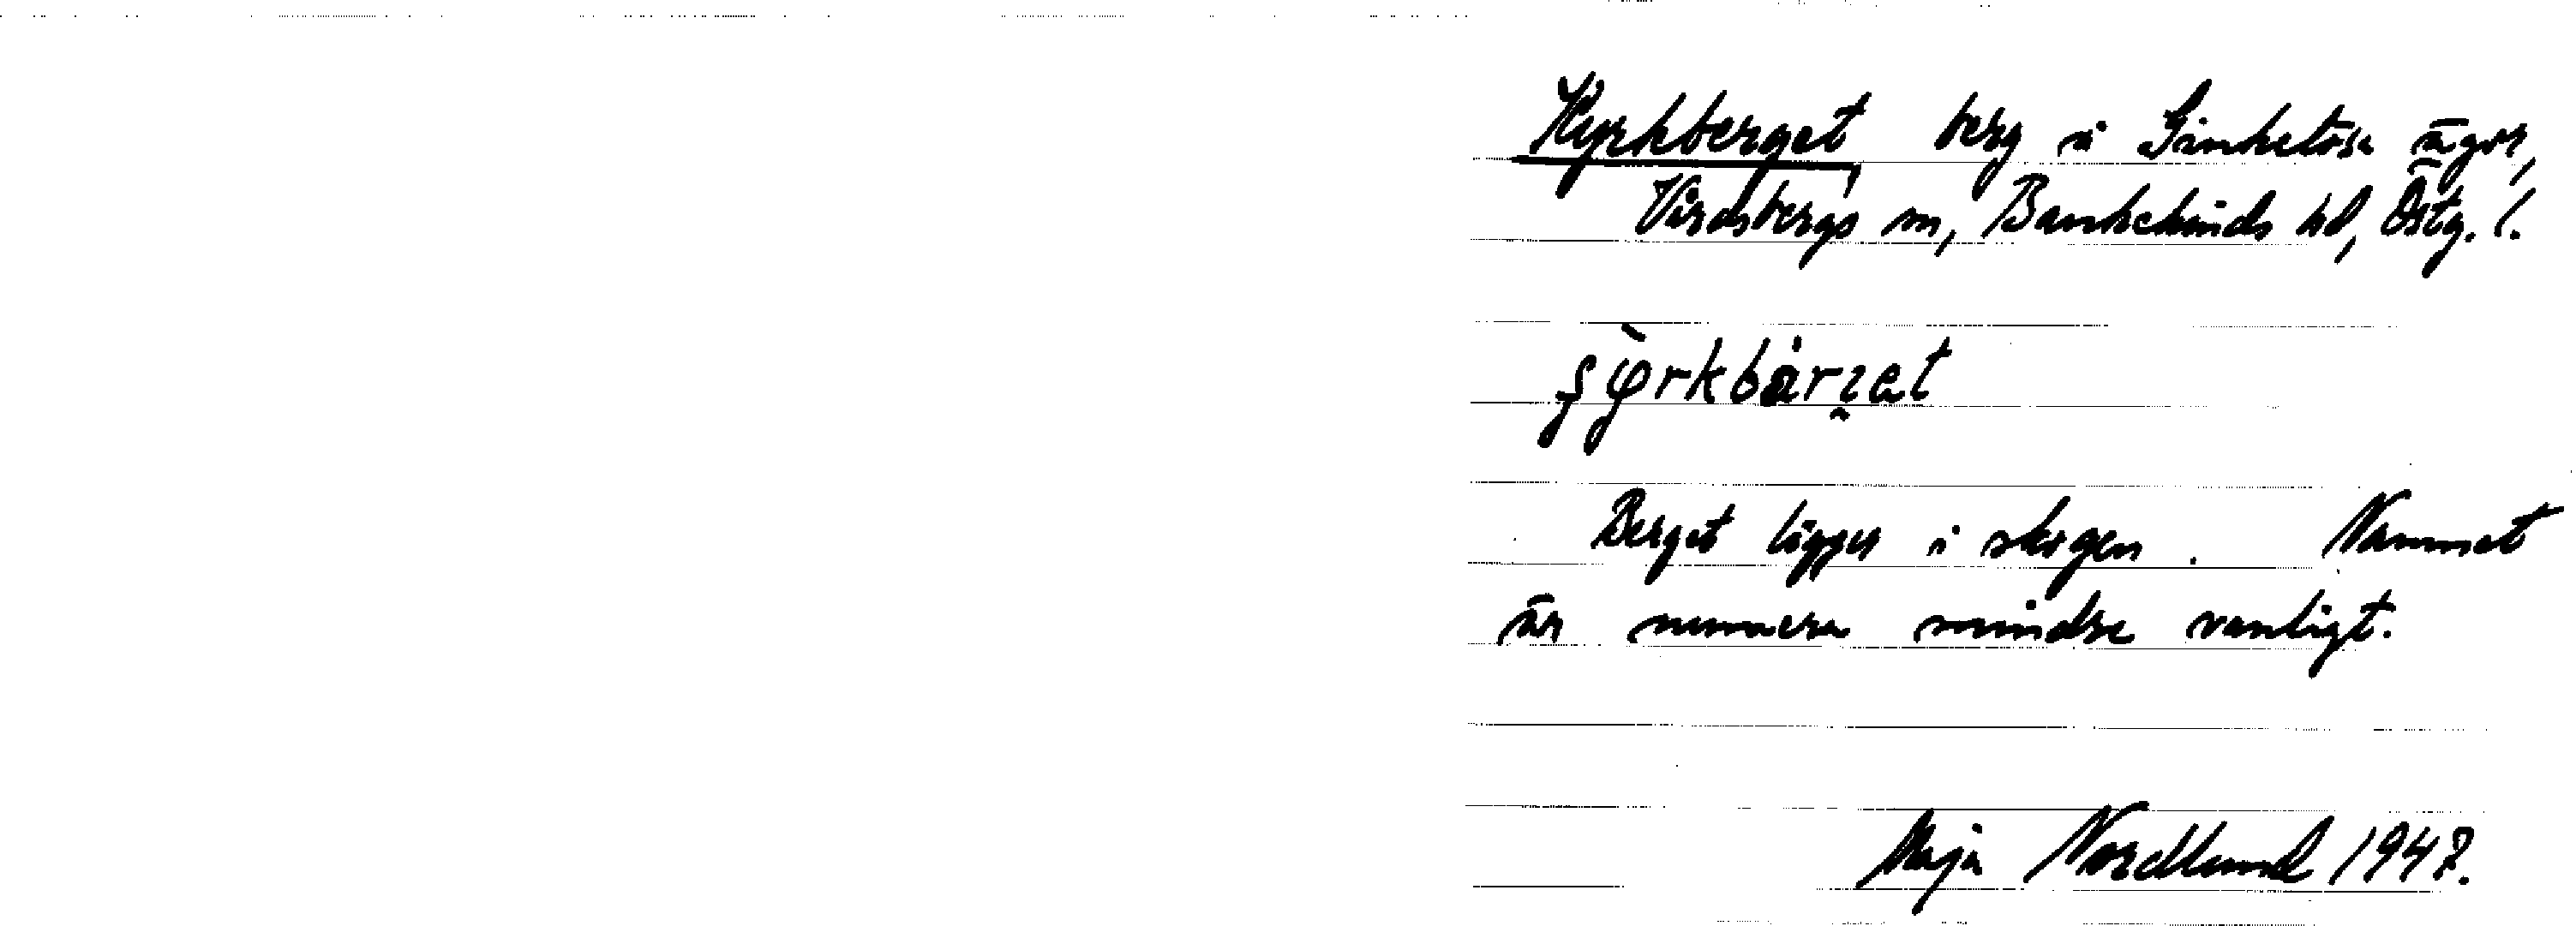 Kyrkberget, berg å Ginkelösa ägor,
Vårdsbergs sn, Bankekinds hd, Östg. l.
Berget ligger i skogen. Namnet
är numera mindre vanligt.
Maja Nordlund 1947.